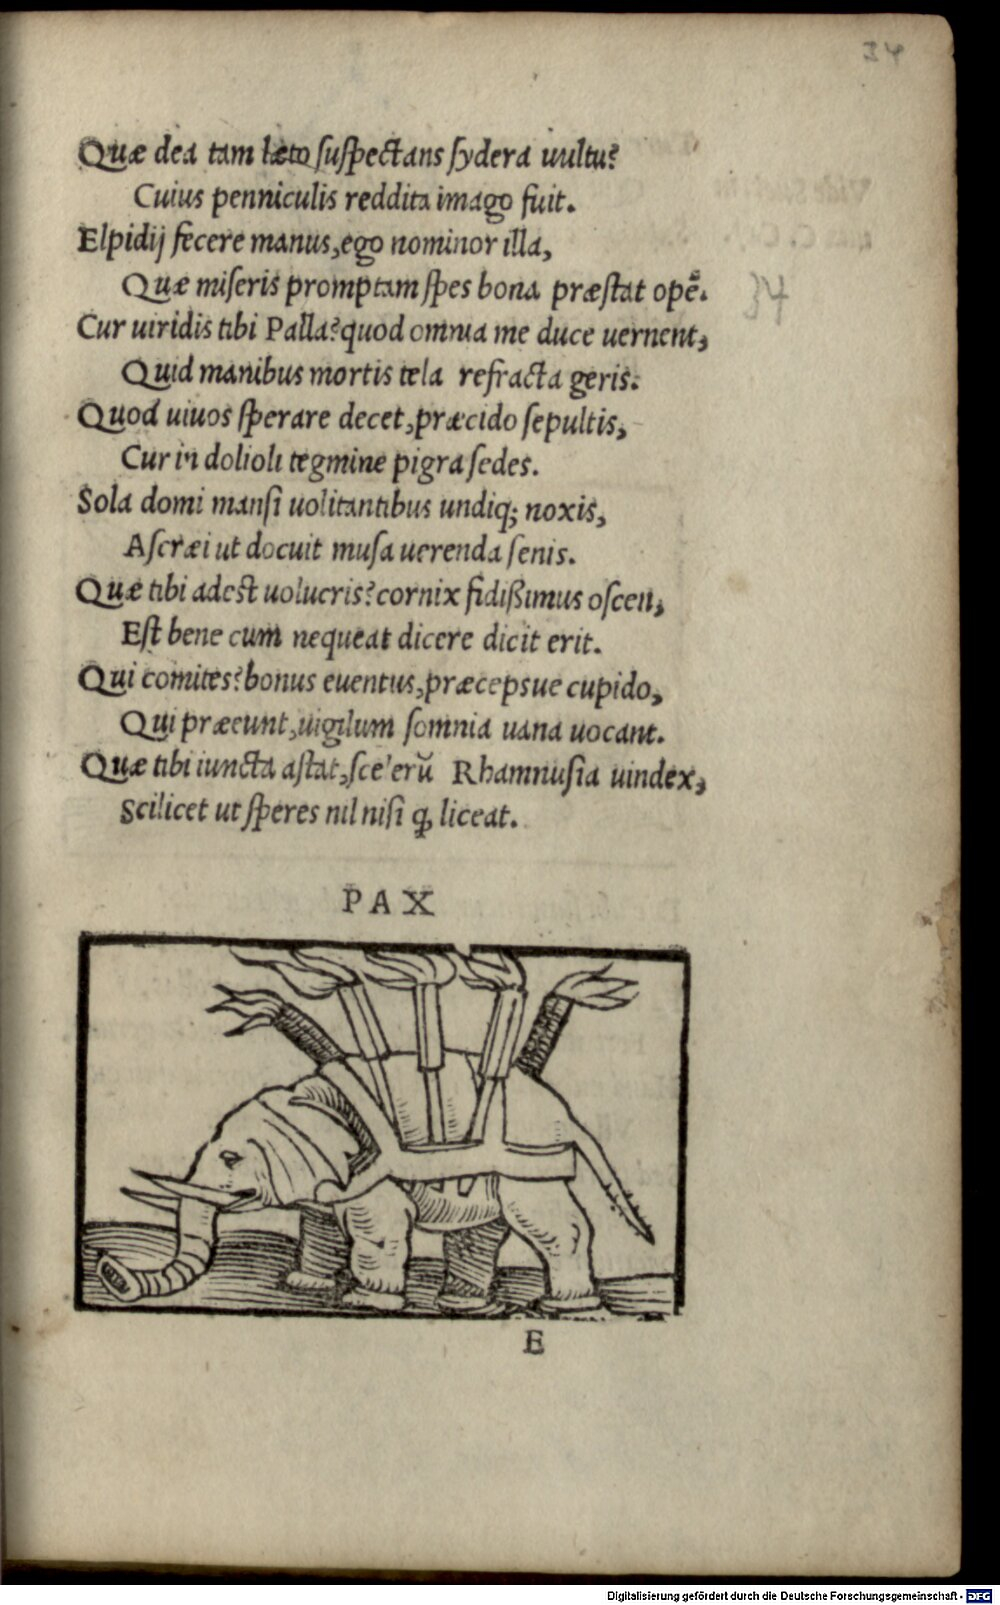 34
Quæ dea tam læto ſuſpectans ſydera uultu?
Cuius penniculis reddita imago fuit.
Elpidij fecere manus, ego nominor illa,
Quæ miſeris promptam ſpes bona præſtat opē.
34
Cur uiridis tibi Palla? quod omnia me duce uernent,
Quid manibus mortis tela refracta geris.
Quod uiuos ſperare decet, præcido ſepultis,
Cur in dolioli tegmine pigra ſedes.
Sola domi manſi uolitantibus undiq; noxis,
Aſcræi ut docuit muſa uerenda ſenis.
Quæ tibi adeſt uolucris? cornix fidißimus oſcen,
Eſt bene cum nequeat dicere dicit erit.
Qui comites? bonus euentus, præcepsue cupido,
Qui præeunt, uigilum ſomnia uana uocant.
Quæ tibi iuncta aſtat, ſcelerū Rhamnuſia uindex,
Scilicet ut ſperes nil niſi ꝙ liceat.
PAX
E
Digitalisierung gefördert durch die Deutsche Forschungsgemeinschaft - DFG